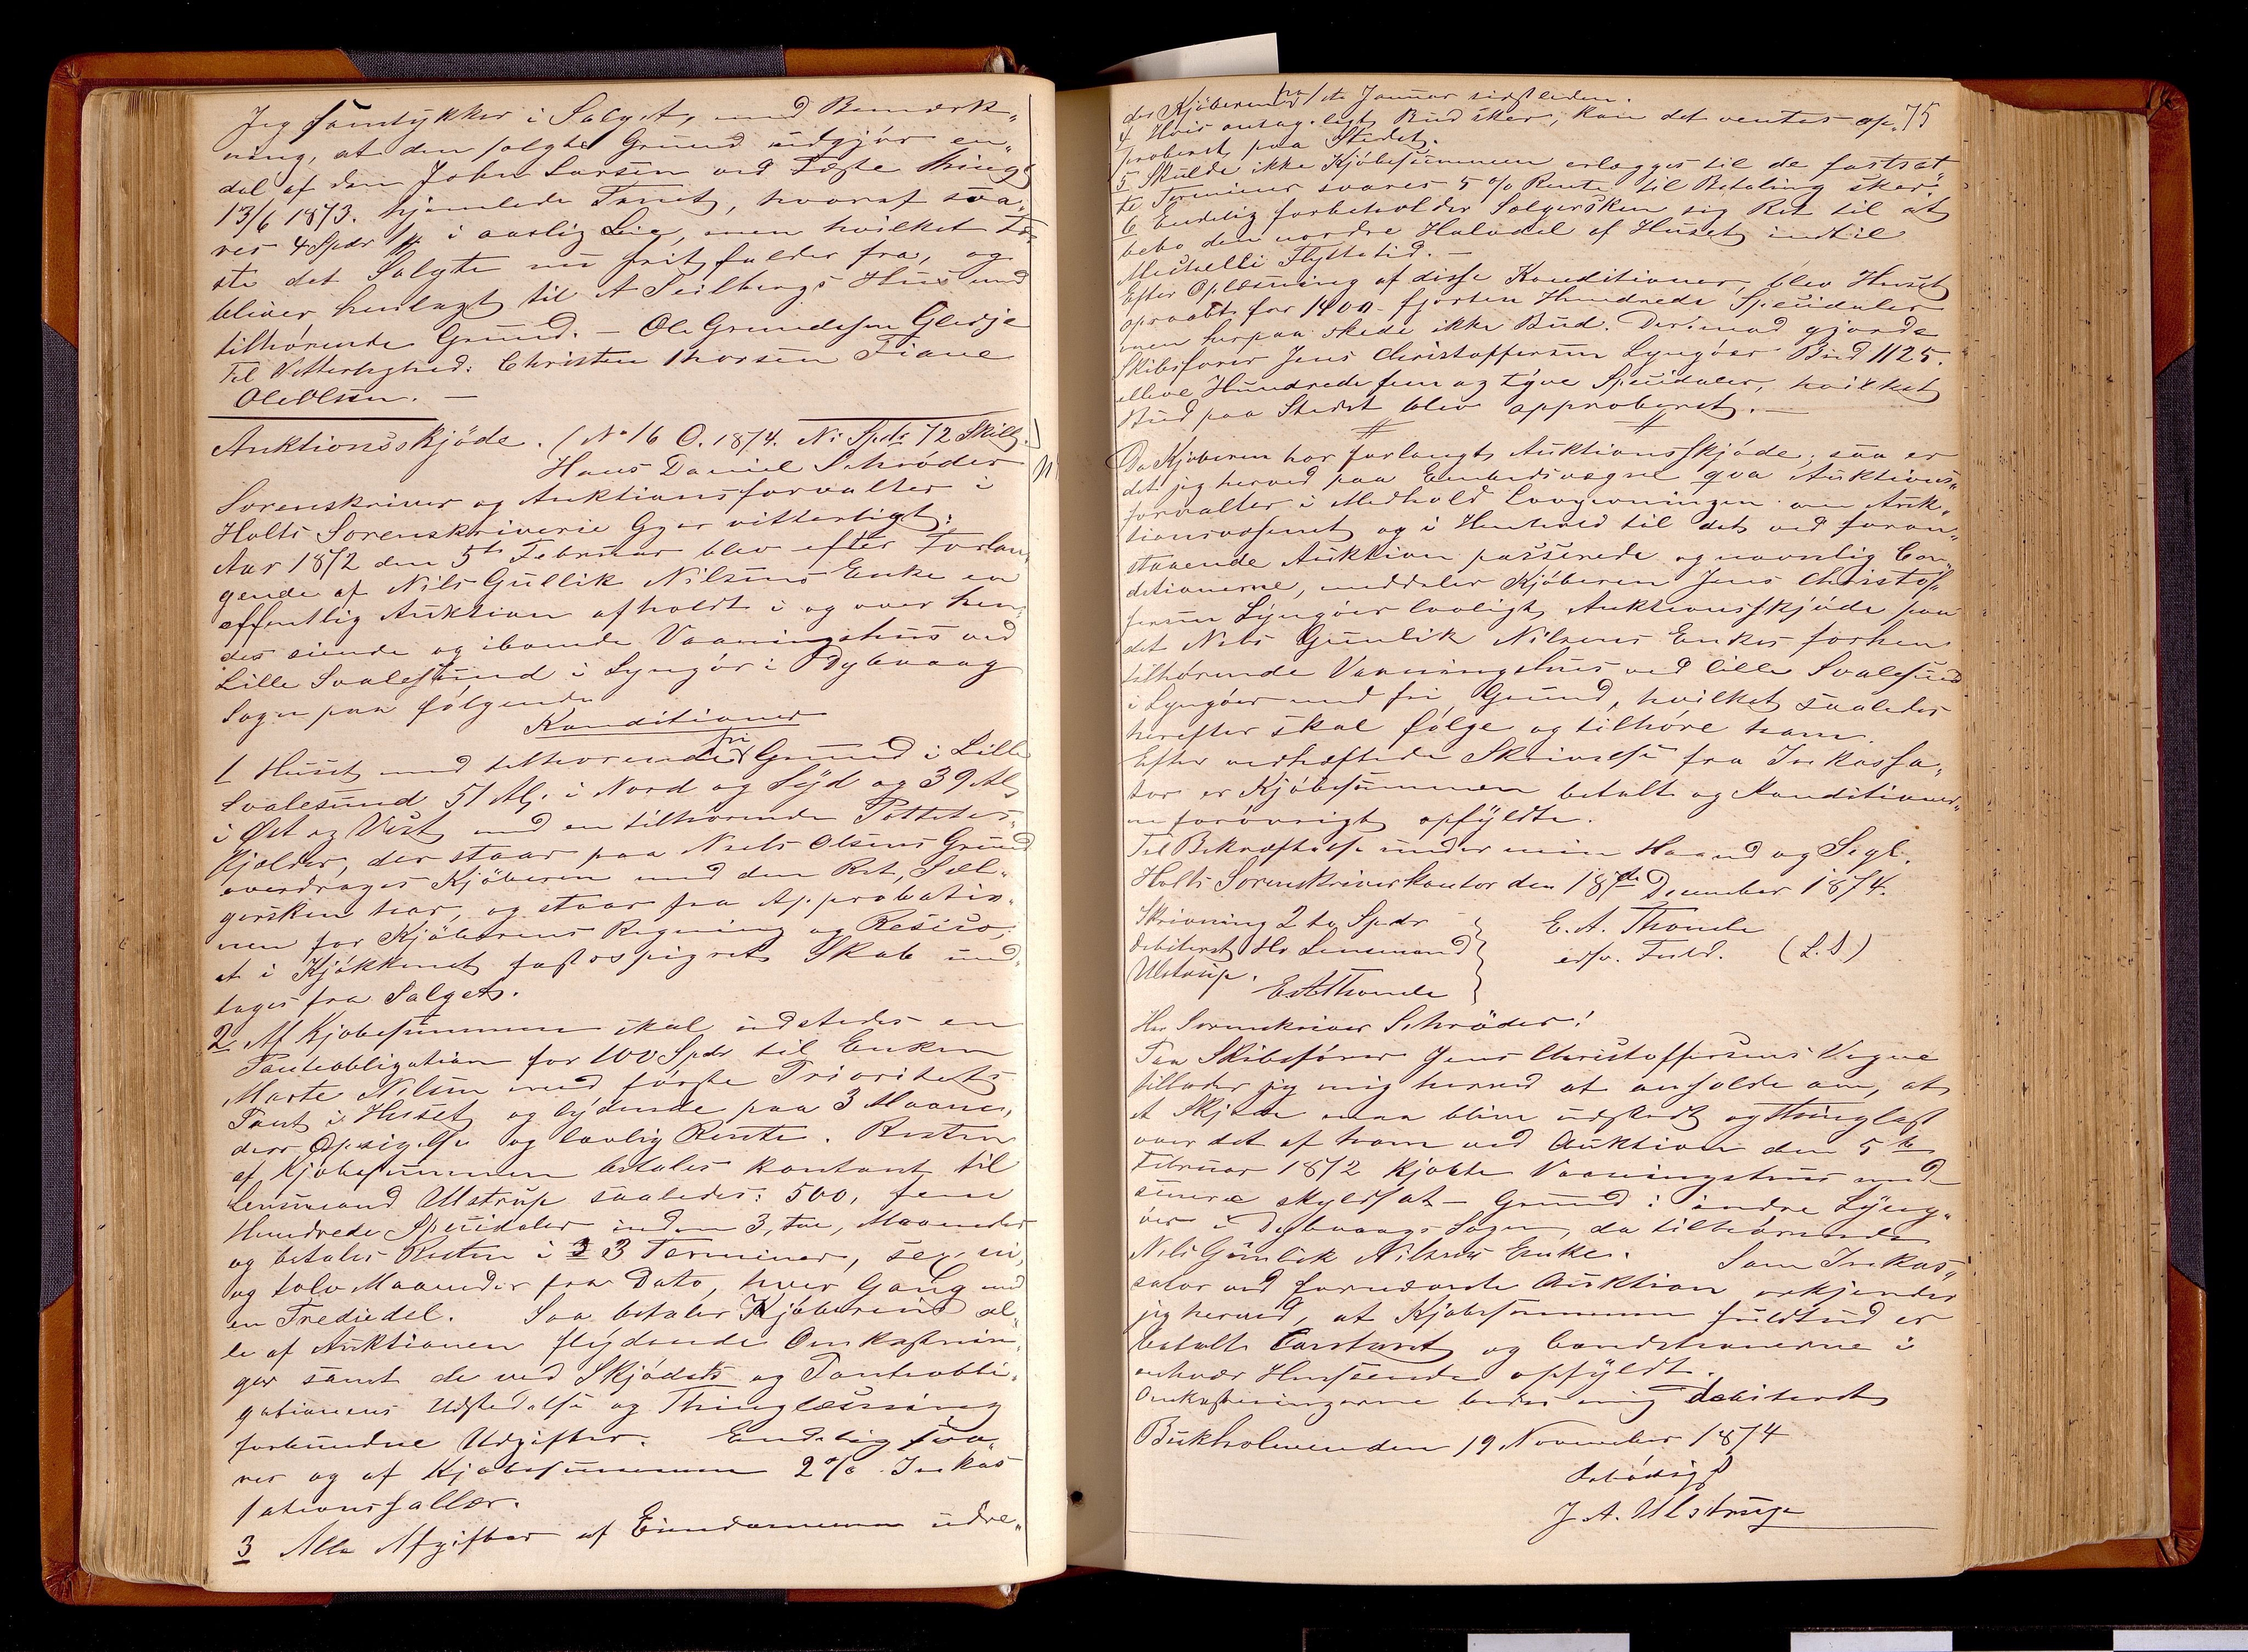 Jeg samtykker i Salget, med Bemærk„
ning, at den solgte Grund udgjør en„
del af den John Larsen ved Fæste thingl.
13/6 1873. hjemlede Tomt, hvoraf sva„
res 4 Spdr i aarlig Leie, men hvilket Fæ„
ste det Solgte nu frit falder fra, og
bliver henlagt til A Seilbergs Huus med
tilhørende Grund. – Ole Grundesen Gledje
Til Vitterlighed: Christen Thorsen Fiane
Ole Olsen. –
Auktionsskjøde. (No 16 O. 1874. Ni Spdr 72 Skill.)
Hans Daniel Schrøder
Sorenskriver og Auktionsforvalter i
Holts Sorenskriverie Gjør vitterligt:
Aar 1872 den 5te Februar blev efter Forlan„
gende af Nils Gullik Nilsens Enke en
offentlig Auktion afholdt i og over hen„
des eiende og iboende Vaaningshus ved
Lille Svalesund i Lyngør i Dybvaag
Sogn paa følgende
Konditioner
1 Huset med tilhørende fri Grund i Lille
Svalesund 51 Al. i Nord og Syd og 39 Al.
i Øst og Vest med en tilhørende Pottetes„
kjelder, der staar paa Niels Olsens Grund
overdrages Kjøberen med den Ret, Sæl„
gersken har, og staar fra Approbatio„
nen for Kjøberens Regning og Resico,
et i Kjøkkenet fastspigret Skab und„
tages fra Salget.
2 Af Kjøbesummen skal udstedes en
Panteobligation for 100 Spdr til Enken
Marte Nilsen med første Prioritets
Pant i Huset og lydende paa 3 Maane„
ders Opsigelse og lovlig Rente. Resten
af Kjøbesummen betales kontant til
Lensmand Ulstrup saaledes: 500, fem
Hundrede Speciedaler inden 3, tre, Maaneder
og betales Resten i 3 Terminer, sex, ni,
og tolv Maaneder fra Dato, hver Gang med
en Trediedel. Saa betaler Kjøberen al„
le af Auktionen flydende Omkostnin„
ger samt de med Skjødets og Panteobli„
gationens Udstedelse og Thinglæsning
forbundne Udgifter. Endelig sva„
res og af Kjøbesummen 2 % Inkas
sationssallær.
3 Alle Afgifter af Eiendommen udre„
75
des Kjøberen fra 1ste Januar sidstleden.
4 Hvis antageligt Bud sker, kan det ventes ap„
proberet paa Stedet.
5 Skulde ikke Kjøbesummen erlægges til de fastsat„
te Terminer svares 5 % Rente til Betaling sker.
6 Endelig forbeholder Sælgersken sig Ret til at
bebo den nordre Halvdel af Huset indtil
Michelli Flyttetid. –
Efter Oplæsning af disse Konditioner, blev Huset
opraabt for 1400 fjorten Hundrede Speciedaler
men herpaa skede ikke Bud. Derimod gjorde
Skibsfører Jens Christoffersen Lyngøer Bud 1125.
elleve Hundrede fem og tyve Speciedaler, hvilket
Bud paa Stedet blev approberet. –
Da Kjøberen har forlangt Auktionsskjøde, saa er
det jeg herved paa Embedsvegne qva Auktions„
forvalter i Medhold Lovgivningen om Auk„
tionsvæsenet og i Henhold til det ved foran„
staaende Auktion passerede og navnlig Con„
ditionerne, meddeler Kjøberen Jens Christof„
fersen Lyngøer lovligt Auktionsskjøde paa
det Nils Gunlik Nilsens Enkes forhen
tilhørende Vaaningshus ved lille Svalesund
i Lyngøer med fri Grund, hvilket saaledes
herefter skal følge og tilhøre ham.
Efter vedhæftede Skrivelse fra Inkassa„
tor er Kjøbesummen betalt og Konditioner„
ne forøvrigt opfyldte.
Til Bekræftelse under min Haand og Segl.
Holts Sorenskriverkontor den 18de December 1874.
Skrivning 2 to Spdr
debiteret Hr Lensmand
Ulstrup.
E A Thomle
E. A. Thomle
edsv. Fuldm. (L.S)
Hr Sorenskriver Schrøder!
Paa Skibsfører Jens Christoffersens Vegne
tillader jeg mig herved at anholde om, at
et Skjøde maa blive udstædt og thinglæst
over det af ham ved Auktion den 5te
Februar 1872 kjøbte Vaaningshus med
skyldsat Grund i indre Lyng„
ør i Dybvaags Sogn, da tilhørende
Nils Gunlik Nilsens Enke. Som Inkas„
sator ved fornævnte Auktion erkjender
jeg herved, at Kjøbesummen fuldtud er
betalt Contant og Conditionerne i
enhver Henseende opfyldt.
Omkostningerne bedes mig debiteret
Bukholmen den 19 November 1874
Ærbødigst
J. A. Ulstrup